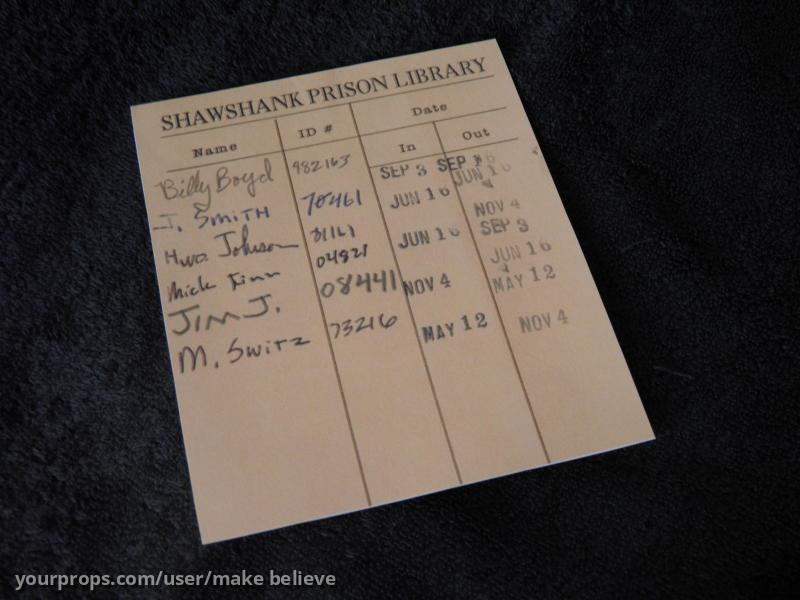 SHAWSHANK PRISON LIBRARY
Name ID # Date
In Out
Billy Boyd 982163 SEP 3 SEP 16
JUN 16
J. SMITH 70461 JUN 16 NOV 4
Hwd. Johnson 31161 JUN 16 SEP 3
Mick Finn 04821 JUN 16
JIM J. 08441 NOV 4 MAY 12
M. SWITZ 73216 MAY 12 NOV 4
yourprops.com/user/make believe